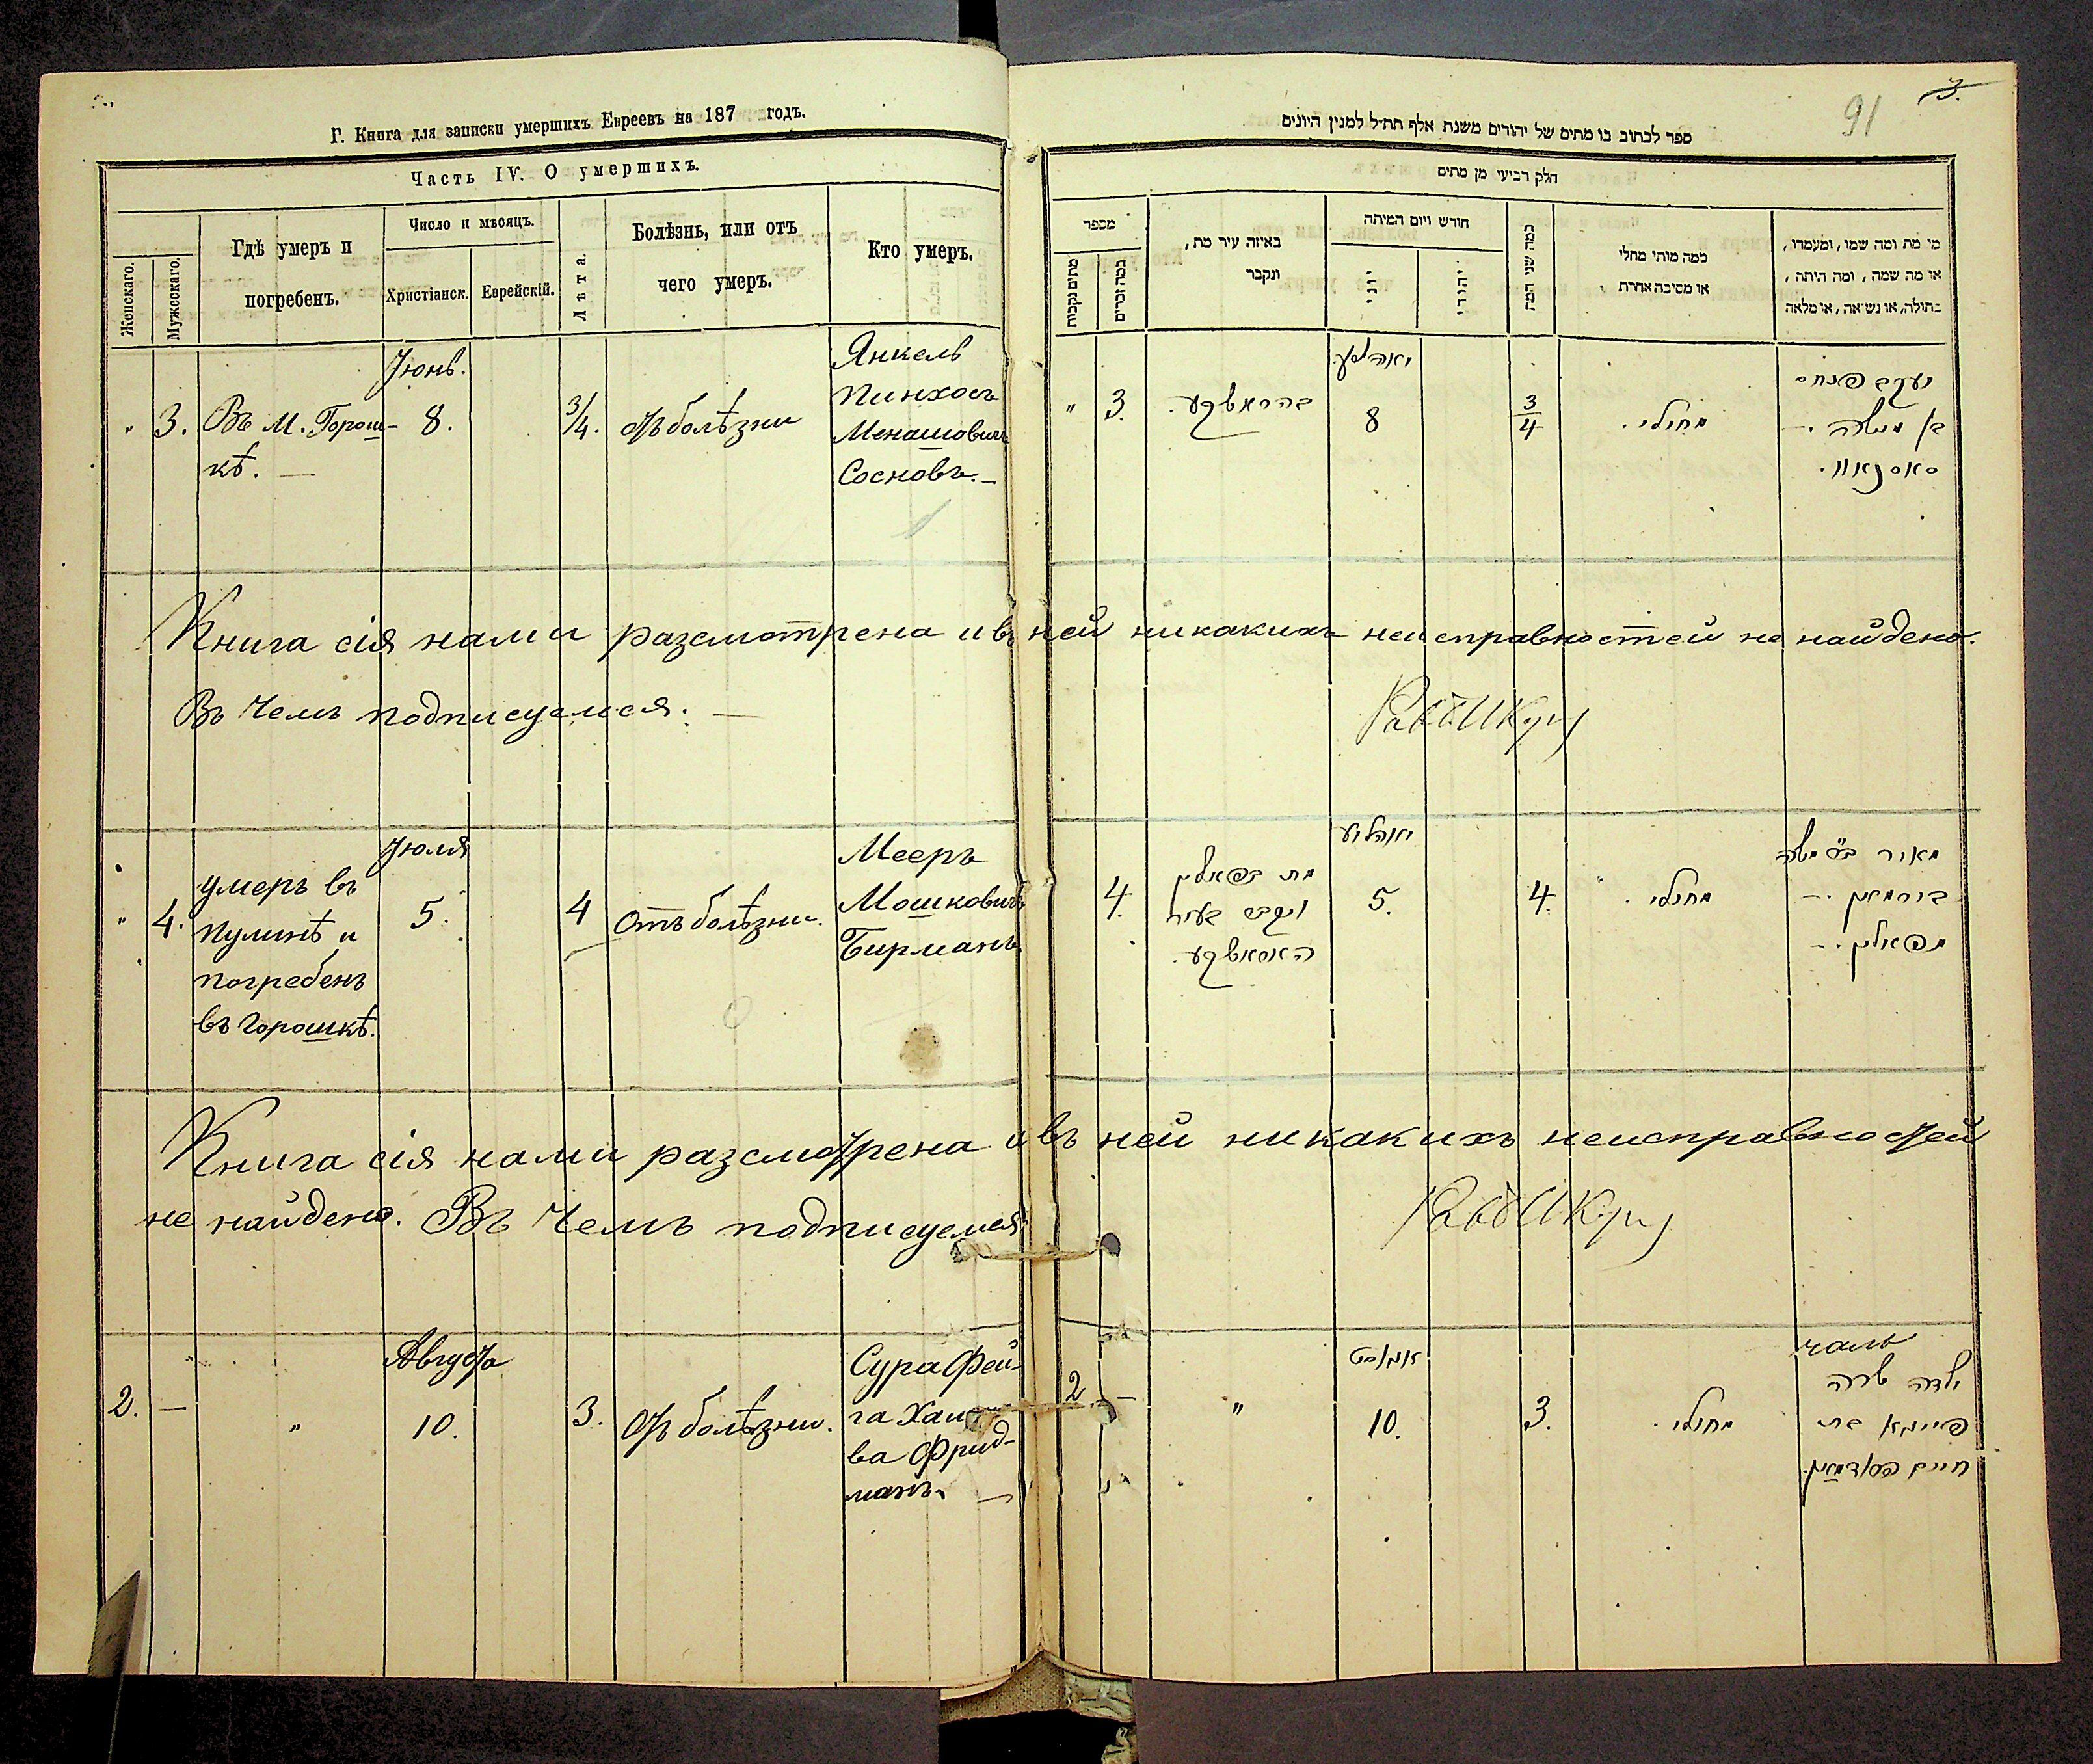 Г. Книга для записки умершихъ Евреевъ на 187 годъ.
Часть IV. О умершихъ.
Женскаго.
Мужескаго.
Гдѣ умеръ и
погребенъ.
Число и мѣсяцъ.
Христіанск.
Еврейскій.
Лѣта.
Болѣзнь, или отъ
чего умеръ.
Кто умеръ.
Іюнь.
" 3.
Въ м. Горош-
кѣ. —
8.
3/4.
Отъ болѣзни
Янкель
Пинхосъ
Менашовичъ
Сосновъ. —
Книга сія нами разсмотрена и въ ней никакихъ неисправностей не найдено.
Въ чемъ подписуемся. —
Іюля
" 4.
умеръ въ
Пулинѣ и
погребенъ
въ Горошкѣ.
5.
4
Отъ болѣзни.
Мееръ
Мошковичъ
Бирманъ
Книга сія нами разсмотрена и въ ней никакихъ неисправностей
не найдено. Въ чемъ подписуемся
Августа
2. —
"
10.
3.
Отъ болѣзни.
Сура Фей-
га
ва Фрид-
манъ. —
91
3.
ספר לכתוב בו מתים של יהודים משנת אלף תת״ל למנין היונים
חלק רביעי מן מתים
מספר
מתים נקבות
כמה זכרים
באיזה עיר מת,
ונקבר
חודש ויום המיתה
יוני
יהודי
כמה שני המת
כמה מותי מחלי
או מסיבה אחרת
מי מת ומה שמו, ומעמדו,
או מה שמה, ומה היתה,
בתולה, או נשאה, או מלאה
" 3.
בהראשקע.
8
3/4
מחולי.
יעקב פנחס
בן מנשה —
סאסנאוו.
4.
מת בפאלין
ונקבר בעיר
האראשקע.
5.
4.
מחולי.
מאיר ב״ר משה
בירמאן. —
מפאלין. —
אוגוסט
2 —
"
10.
3.
מחולי.
ילדה שרה
פייגא בת
חיים פרידמאן.